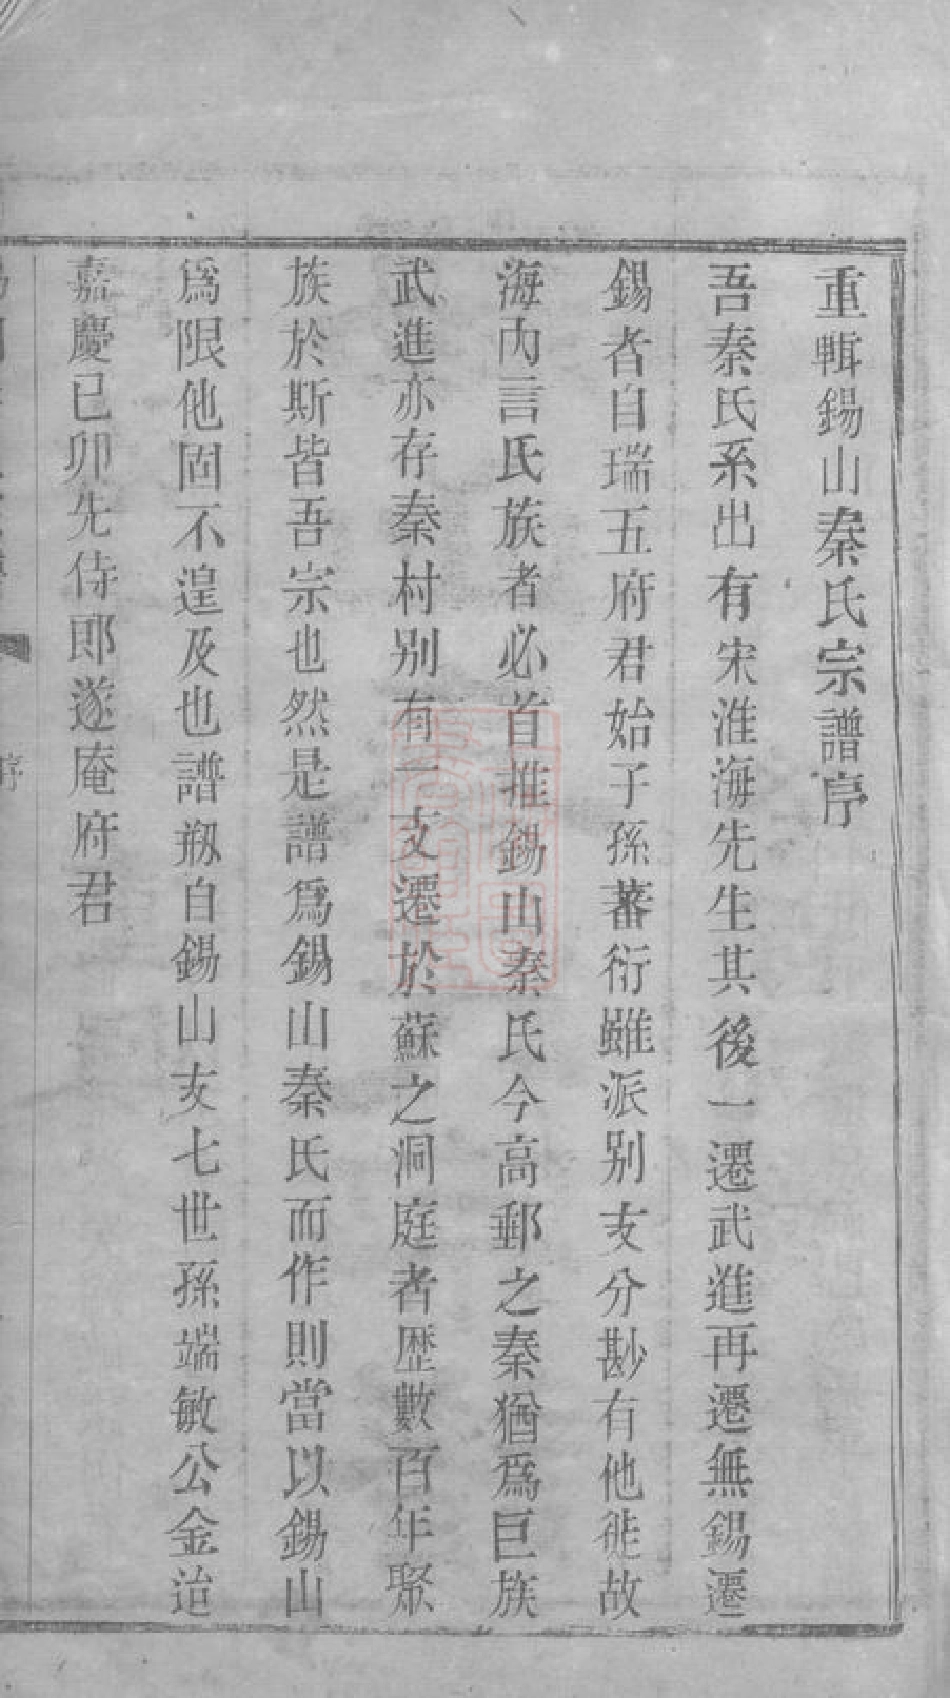 重輯錫山秦氏宗譜序
吾秦氏系出有宋淮海先生其後一遷武進再遷無錫遷
錫者自瑞五府君始子孫蕃衍雖派别支分尠有他徙故
海内言氏族者必首推錫山秦氏今高郵之秦猶爲巨族
武進亦存秦村别有一支遷於蘇之洞庭者歷數百年聚
族於斯皆吾宗也然是譜爲錫山秦氏而作則當以錫山
爲限他固不遑及也譜剏自錫山支七世孫端敏公金迨
嘉慶己卯先侍郎遂庵府君
序